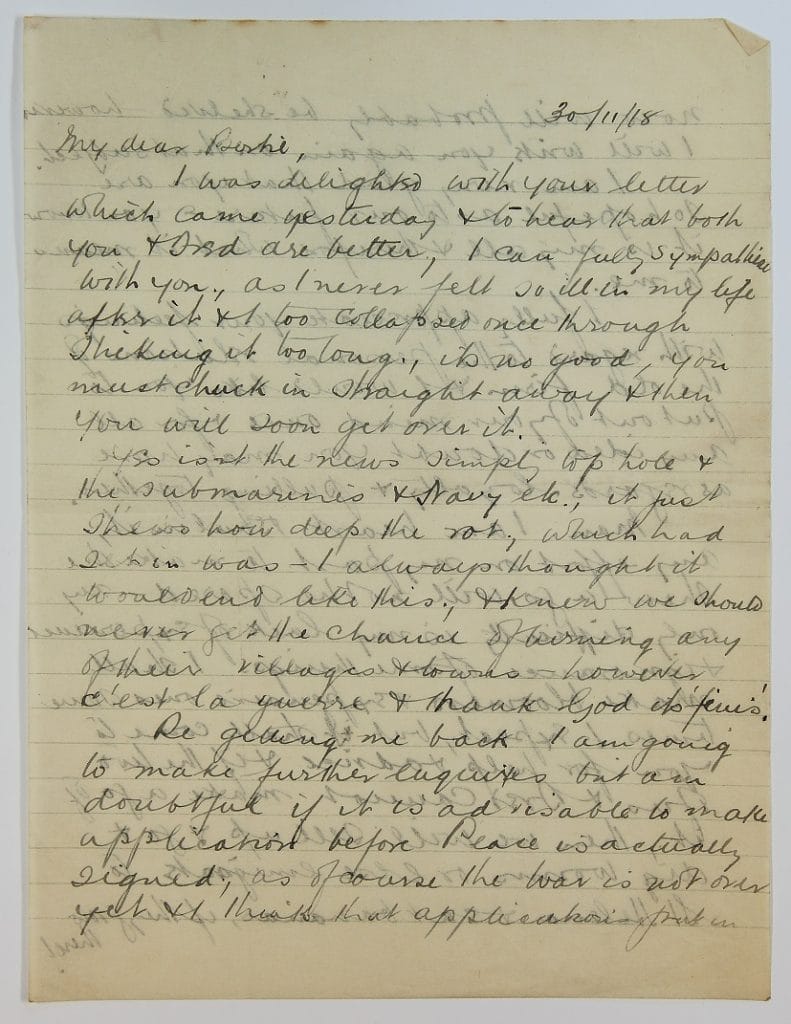 30/11/18
My dear Bertie,
I was delighted with your letter
which came yesterday & to hear that both
you & Fred are better, I can fully sympathise
with you, as I never felt so ill in my life
after it & I too collapsed once through
sticking it too long, its no good, you
must chuck in straight away & then
you will soon get over it.
Yes isn't the news simply top hole &
the submarines & Navy etc., it just
shews how deep the rot, which had
set in was – I always thought it
would end like this, & knew we should
never get the chance of burning any
of their villages & towns however
c'est la guerre & thank God its 'finis'.
Re getting me back I am going
to make further enquiries but am
doubtful if it is advisable to make
application before Peace is actually
signed, as of course the war is not over
yet & I think that applications put in